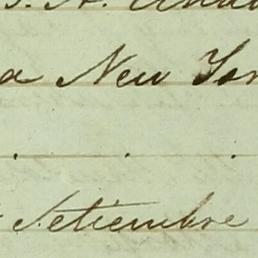 a New Yor
. . .
Setiembre